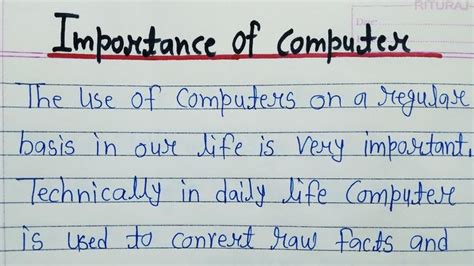 RITURAJ
Importance of Computer
The Use of Computers on a regular
basis in our life is very important.
Technically in daily life Computer
is used to convert raw facts and